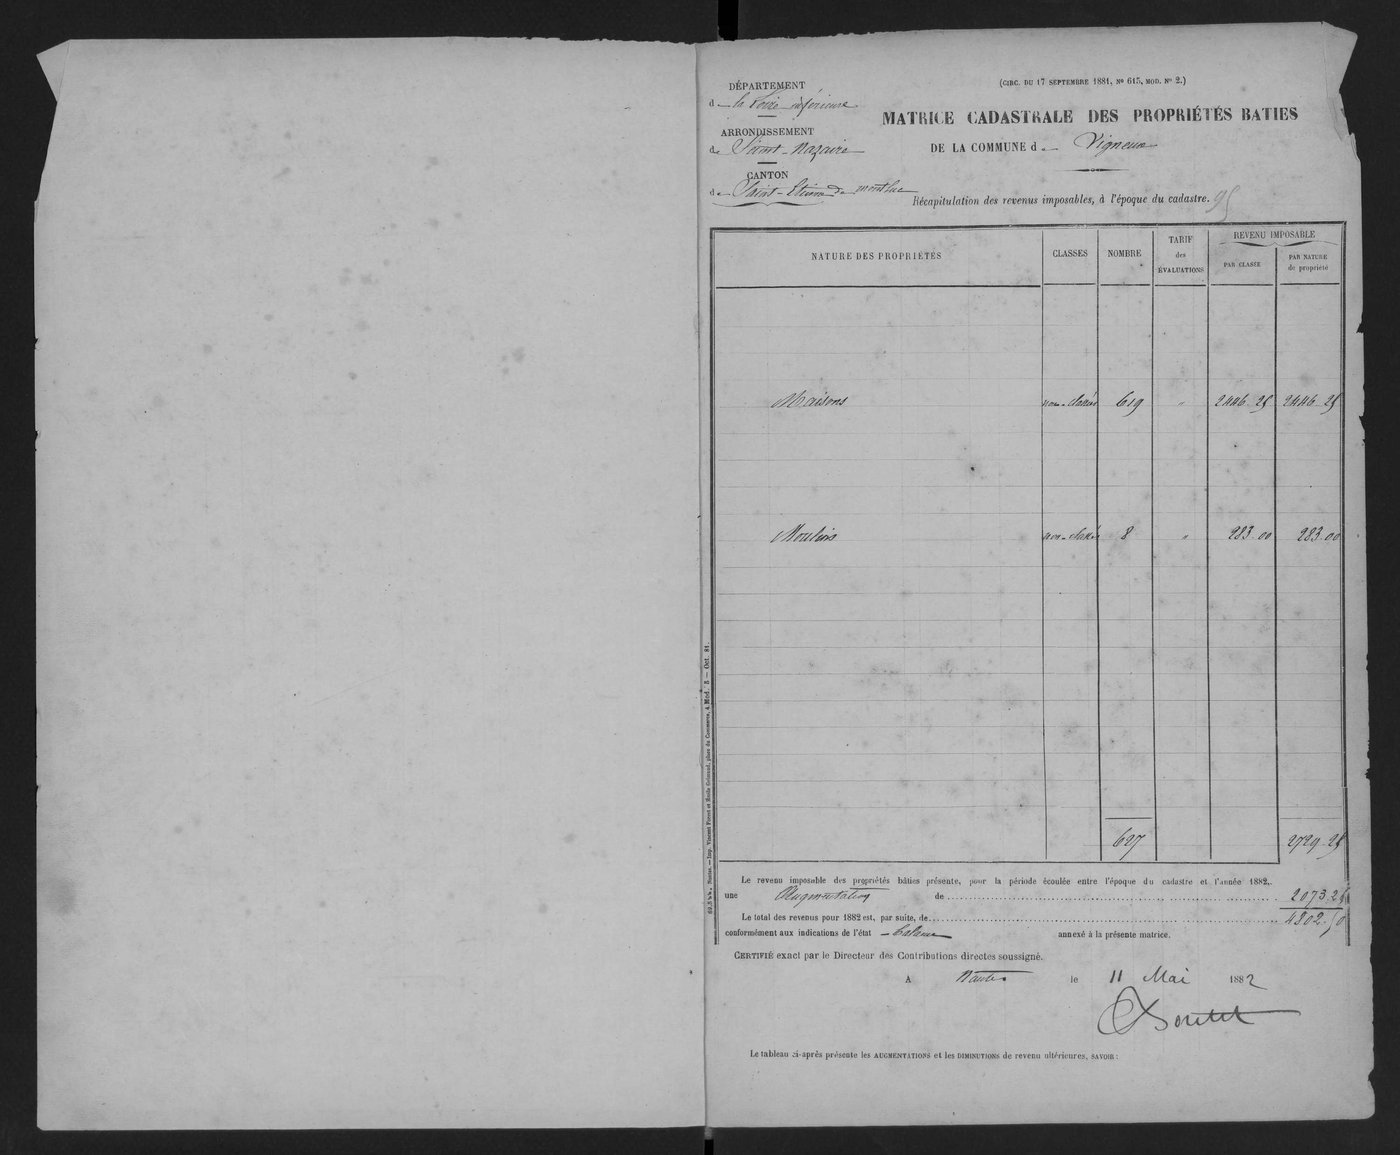 (CIRC. DU 17 SEPTEMBRE 1881, N° 615, MOD. N° 2.)
DÉPARTEMENT
de la Loire-inférieure
ARRONDISSEMENT
de Saint-Nazaire
CANTON
de Saint-Etienne de montluc
MATRICE CADASTRALE DES PROPRIÉTÉS BATIES
DE LA COMMUNE de Vigneux
Récapitulation des revenus imposables, à l'époque du cadastre. 95
NATURE DES PROPRIÉTÉS CLASSES NOMBRE TARIF des ÉVALUATIONS REVENU IMPOSABLE
PAR CLASSE PAR NATURE de propriété
Maisons non-classées 619 " 2446.25 2446.25
Moulins non-classés 8 " 283.00 283.00
627 2729.25
Le revenu imposable des propriétés bâties présente, pour la période écoulée entre l'époque du cadastre et l'année 1882,
une Augmentation de 2073.25
Le total des revenus pour 1882 est, par suite, de 4802.50
conformément aux indications de l'état balance annexé à la présente matrice.
CERTIFIÉ exact par le Directeur des Contributions directes soussigné.
A Nantes le 11 Mai 1882
Le tableau ci-après présente les AUGMENTATIONS et les DIMINUTIONS de revenu ultérieures, SAVOIR :
Nantes. — Imp. Vincent Forest et Émile Grimaud, place du Commerce, 4. Mod. 5 — Oct. 81.